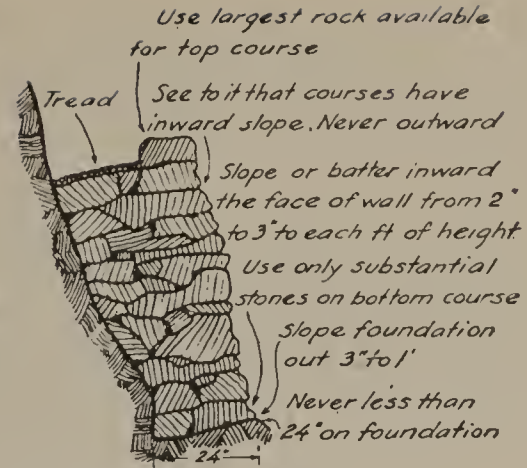 Use largest rock available
for top course
Tread
See to it that courses have
inward slope. Never outward
Slope or batter inward
the face of wall from 2"
to 3" to each ft of height
Use only substantial
stones on bottom course
Slope foundation
out 3" to 1'
Never less than
24" on foundation
24"